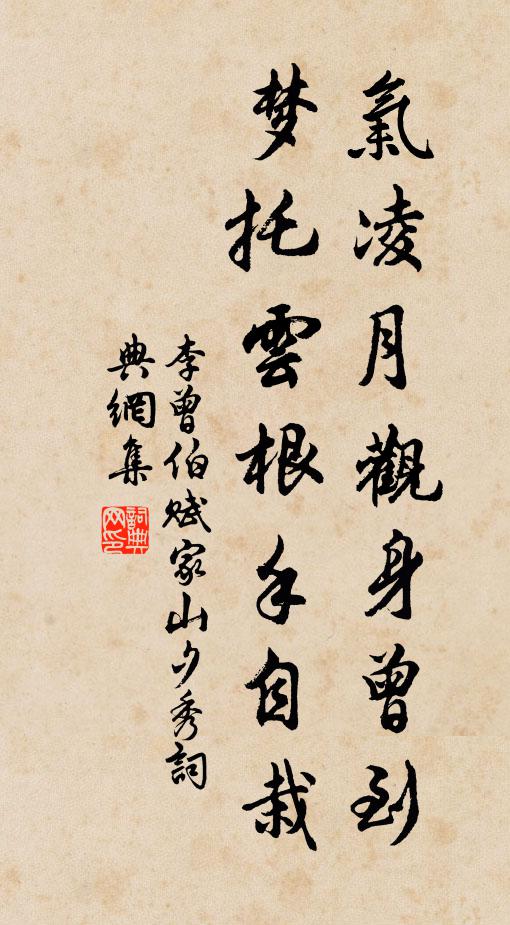 氣凌月觀身曾到
梦托雲根手自栽
李曾伯賦家山夕秀詞
典網集
詞典
网印